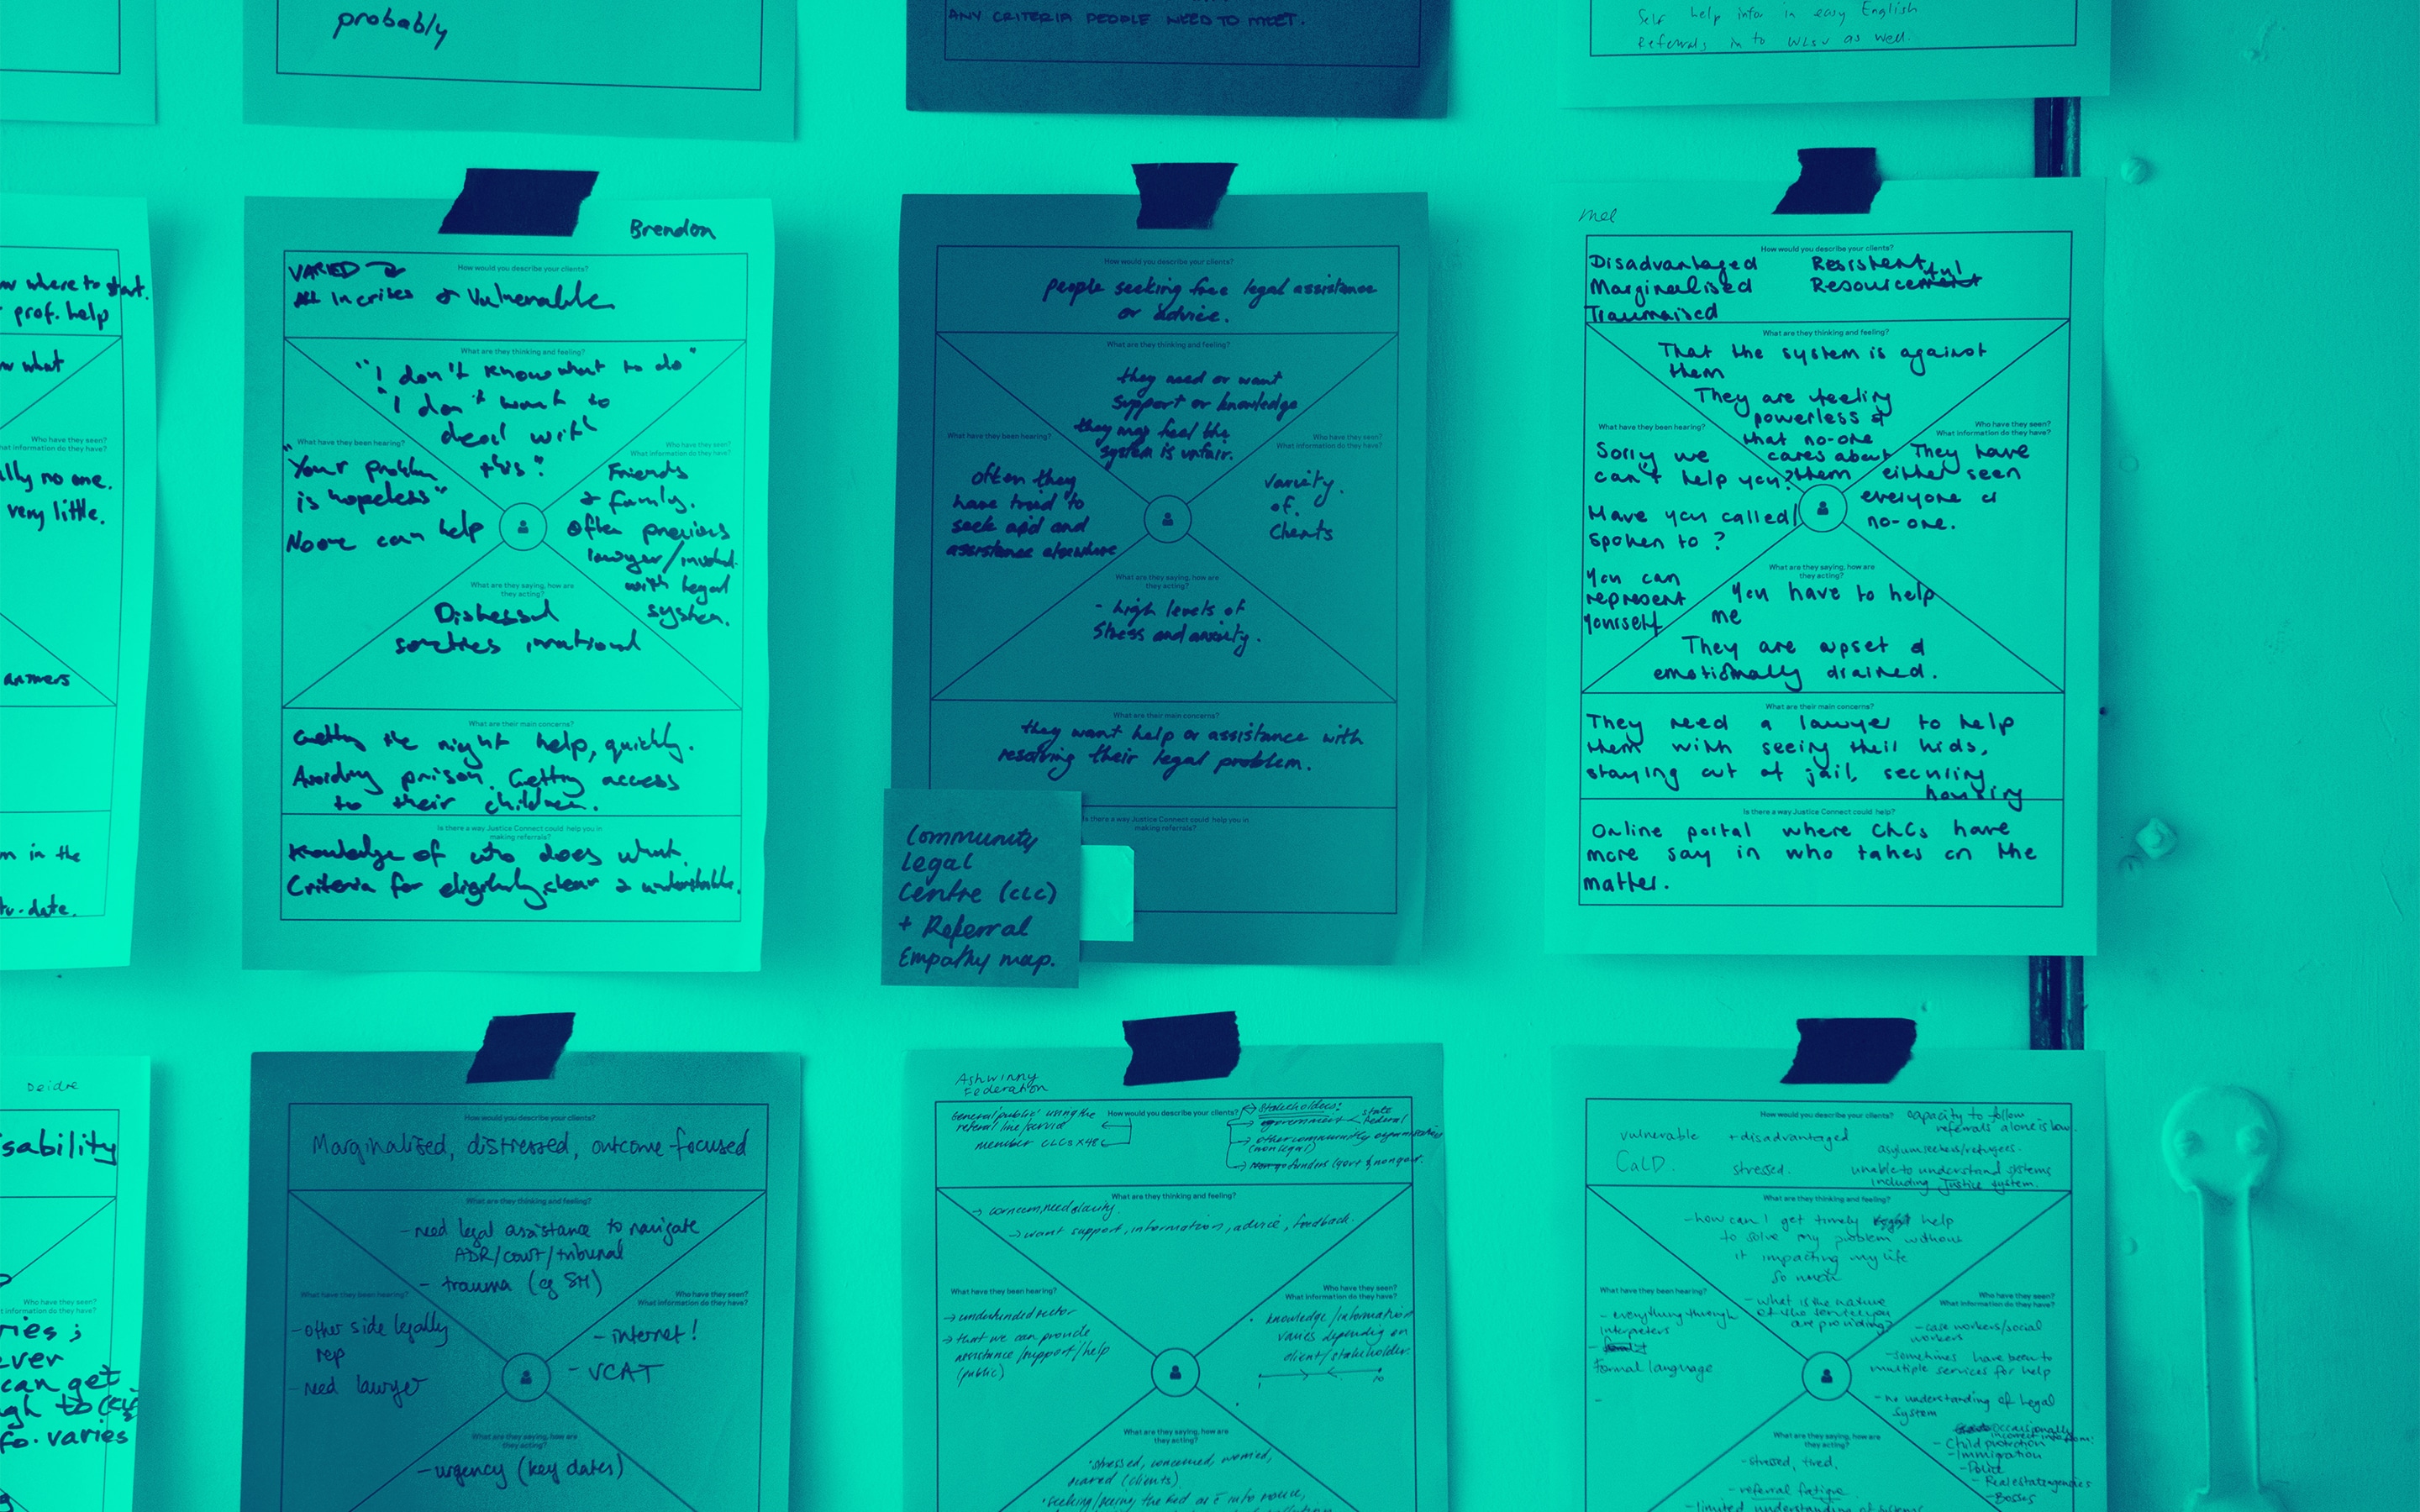 probably
ANY CRITERIA PEOPLE NEED TO MEET.
Self help infor in easy English
Referrals in to WLSV as well.
w where to start.
prof. help
w what
Who have they seen?
What information do they have?
lly no one.
very little.
answers
m in the
to-date.
Brendon
How would you describe your clients?
VARIED
All In crises & Vulnerable
What are they thinking and feeling?
"I don't know what to do"
"I don't want to
deal with
this"
What have they been hearing?
"Your problem
is hopeless"
No one can help
Who have they seen?
What information do they have?
Friends
& family.
Often previous
lawyer/involved
with legal
system.
What are they saying, how are
they acting?
Distressed
sometimes irrational
What are their main concerns?
Getting the right help, quickly.
Avoiding prison. Getting access
to their children.
Is there a way Justice Connect could help you in
making referrals?
Knowledge of who does what.
Criteria for eligibility, clear & understandable.
How would you describe your clients?
people seeking free legal assistance
or advice.
What are they thinking and feeling?
they need or want
support or knowledge
they may feel the
system is unfair.
What have they been hearing?
often they
have tried to
seek aid and
assistance elsewhere
Who have they seen?
What information do they have?
variety
of
clients
What are they saying, how are
they acting?
- high levels of
stress and anxiety.
What are their main concerns?
they want help or assistance with
resolving their legal problem.
Is there a way Justice Connect could help you in
making referrals?
Community
Legal
Centre (CLC)
+ Referral
Empathy map.
Mel
How would you describe your clients?
Disadvantaged
Marginalised
Traumaised
Resistent
Resourceful
What are they thinking and feeling?
That the system is against
them
They are feeling
powerless &
that no-one
cares about
them
What have they been hearing?
Sorry we
can't help you?
Have you called/
spoken to?
You can
represent
yourself
Who have they seen?
What information do they have?
They have
either seen
everyone or
no-one.
What are they saying, how are
they acting?
You have to help
me
They are upset &
emotionally drained.
What are their main concerns?
They need a lawyer to help
them with seeing their kids,
staying out of jail, securing
housing
Is there a way Justice Connect could help?
Online portal where CLCs have
more say in who takes on the
matter.
Deidre
sability
Who have they seen?
What information do they have?
ries;
ever
can get
gh to
fo. varies
How would you describe your clients?
Marginalised, distressed, outcome-focused
What are they thinking and feeling?
- need legal assistance to navigate
ADR/court/tribunal
- trauma (eg SH)
What have they been hearing?
- other side legally
rep
- need lawyer
Who have they seen?
What information do they have?
- internet!
- VCAT
What are they saying, how are
they acting?
- urgency (key dates)
Ashwinny
Federation
How would you describe your clients?
General public using the
referral line/service
member CLCs x48
Stakeholders:
government
state
federal
other community organisations
(non legal)
funders (govt & nongovt.
What are they thinking and feeling?
→ concern, need clarity.
→ want support, information, advice, feedback.
What have they been hearing?
→ underfunded sector
→ that we can provide
assistance/support/help
(public)
Who have they seen?
What information do they have?
knowledge/information
varies depending on
client/stakeholder.
1
10
What are they saying, how are
they acting?
stressed, concerned, worried,
scared (clients)
How would you describe your clients?
vulnerable + disadvantaged
CaLD.
stressed.
capacity to follow
referrals alone is low.
asylum seekers/refugees.
unable to understand systems
including Justice system.
What are they thinking and feeling?
- how can I get timely help
to solve my problem without
it impacting my life
so much
- what is the nature
of the service you
are providing?
What have they been hearing?
- everything through
interpreters
Formal language
Who have they seen?
What information do they have?
- case workers/social
workers
- sometimes have been to
multiple services for help
- no understanding of legal
system
occasionally
incorrect info from:
- Child protection
- Immigration
- Police
- Real estate agencies
- Bosses
What are they saying, how are
they acting?
- stressed, tired.
- referral fatigue
- limited understanding of systems